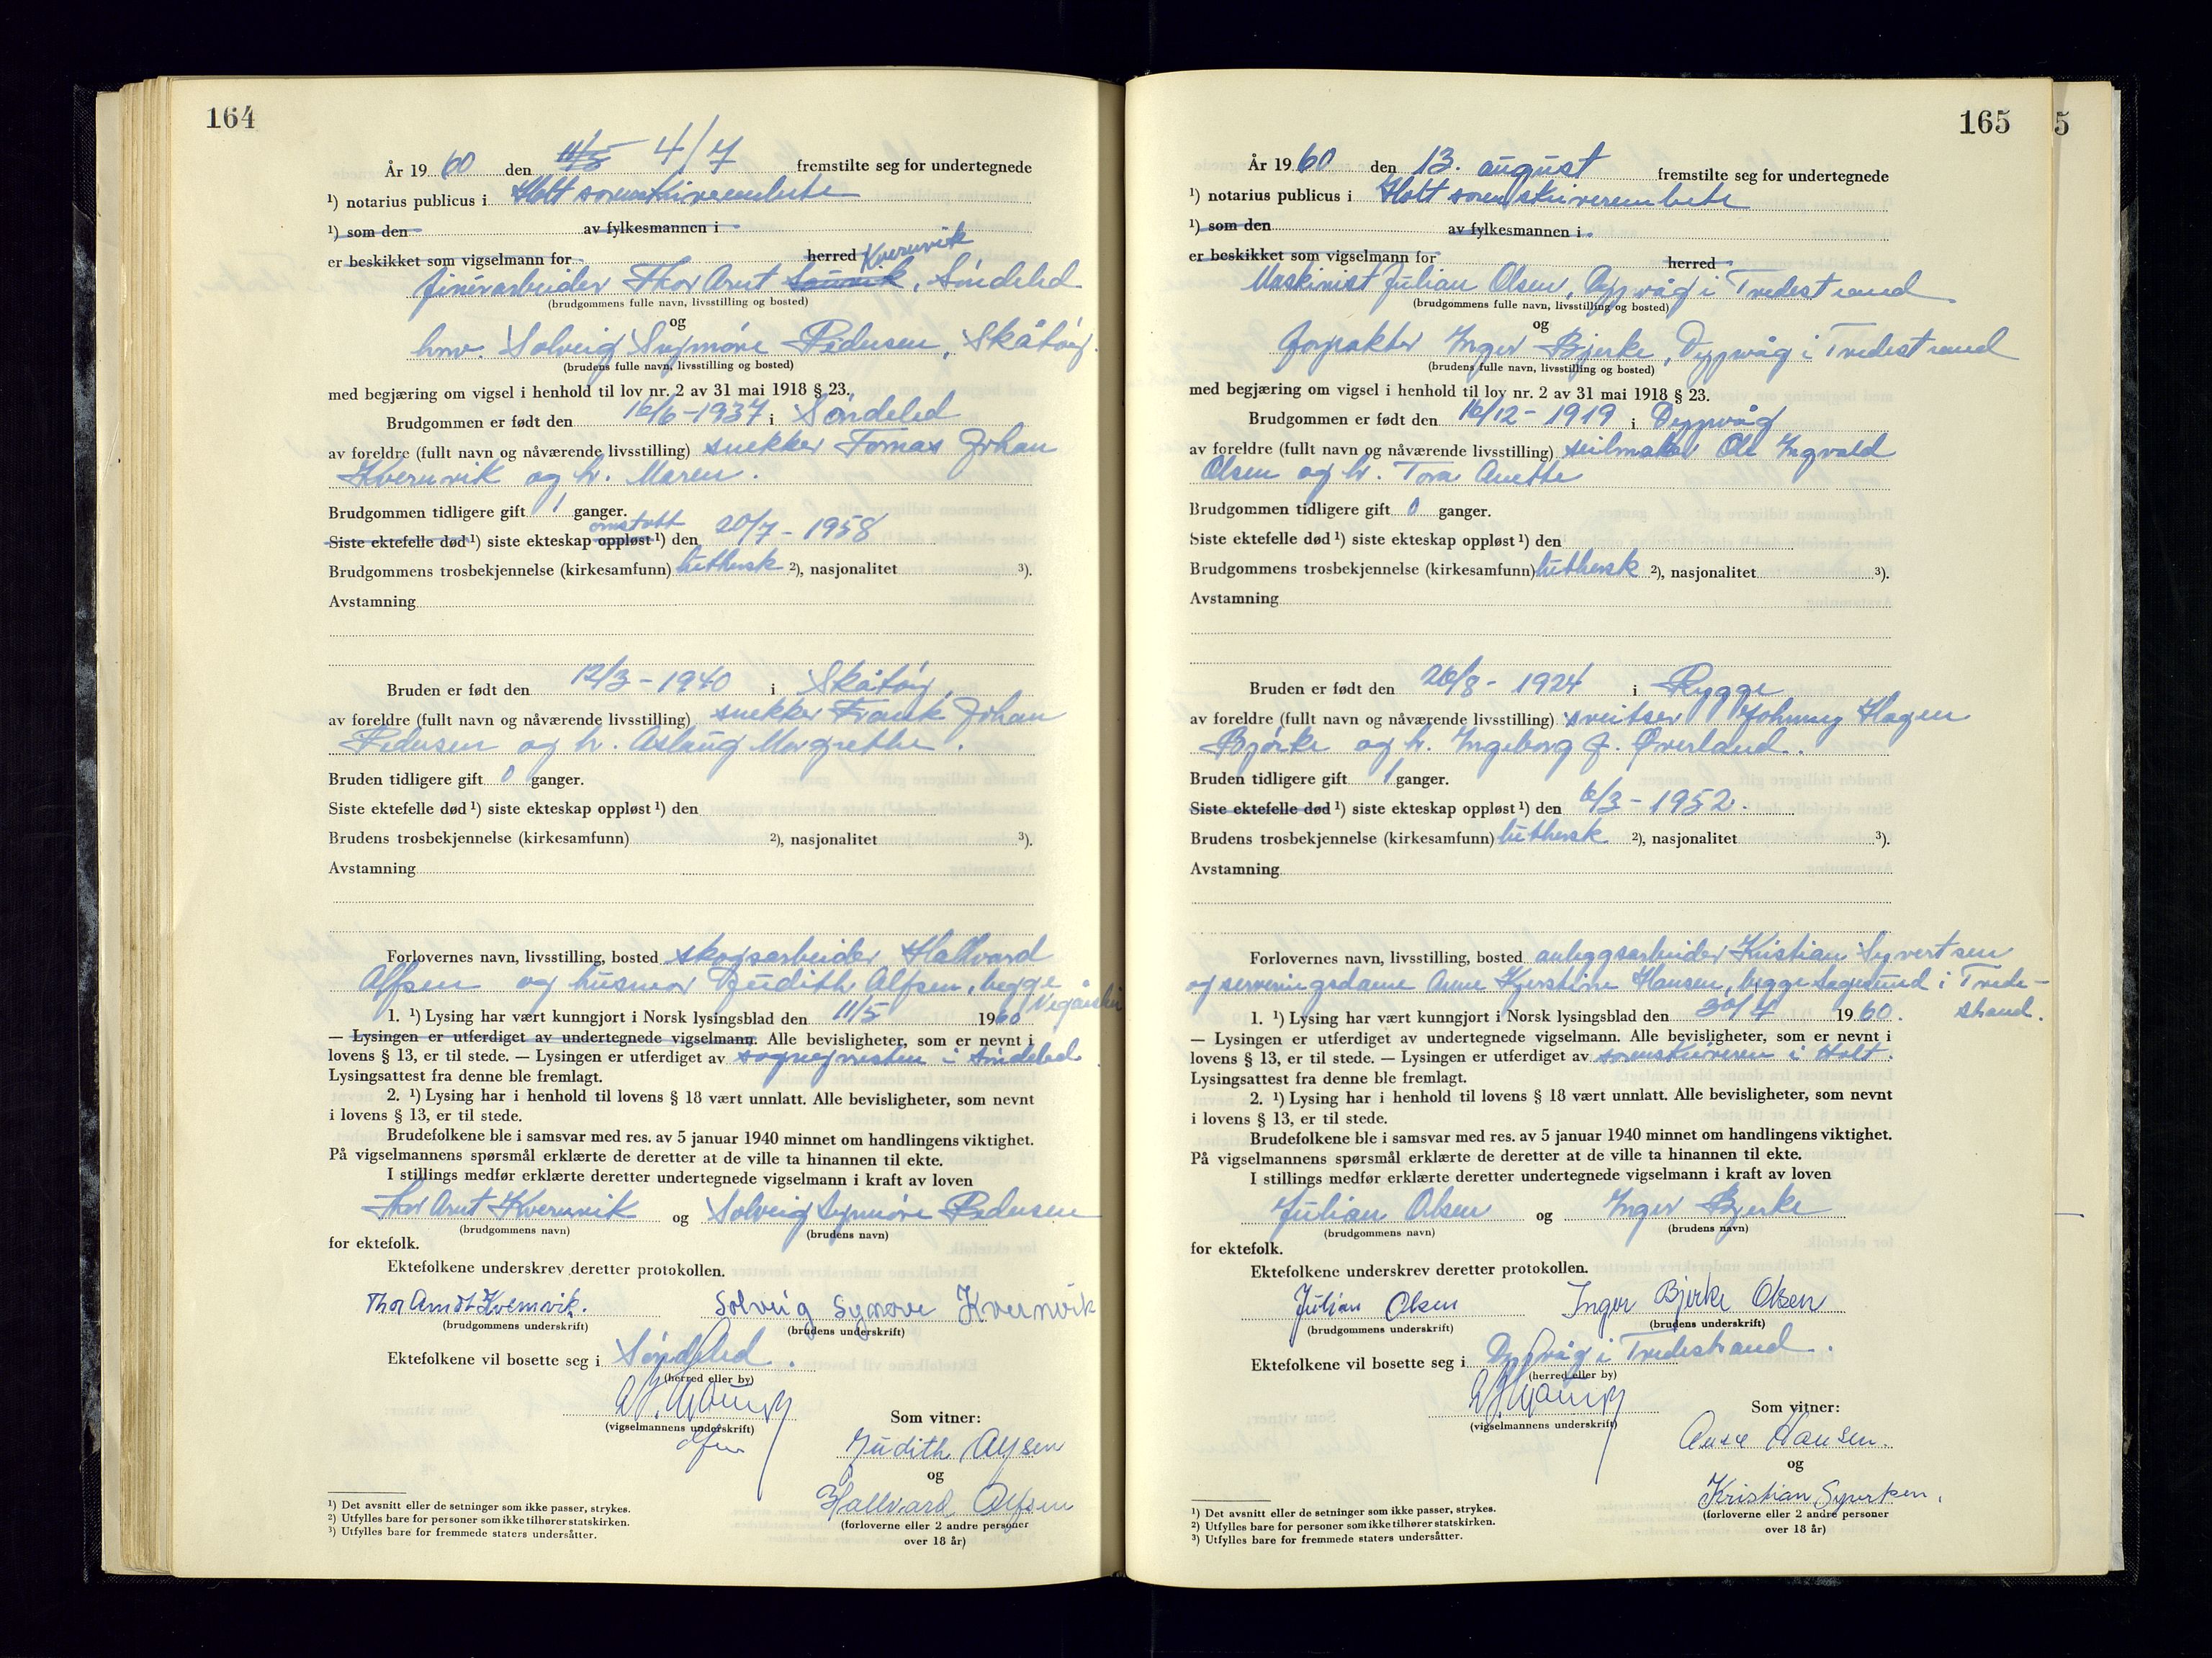 164
År 1960 den 11/5 4/7 fremstilte seg for undertegnede
¹) notarius publicus i Holt sorenskriverembete
¹) som den av fylkesmannen i
er beskikket som vigselmann for herred Kvernvik
finérarbeider Thor Arnt, Søndeled
(brudgommens fulle navn, livsstilling og bosted)
og
hmv. Solveig Synnøve Pedersen, Skåtøy.
(brudens fulle navn, livsstilling og bosted)
med begjæring om vigsel i henhold til lov nr. 2 av 31 mai 1918 § 23.
Brudgommen er født den 16/6-1937 i Søndeled
av foreldre (fullt navn og nåværende livsstilling) snekker Tomas Johan
Kvernvik og h. Maren.
Brudgommen tidligere gift 1 ganger.
omstøtt
Siste ektefelle død¹) siste ekteskap oppløst¹) den 20/7-1958
Brudgommens trosbekjennelse (kirkesamfunn) luthersk ²), nasjonalitet ³).
Avstamning
Bruden er født den 12/3-1940 i Skåtøy,
av foreldre (fullt navn og nåværende livsstilling) snekker Frank Johan
Pedersen og h. Aslaug Margrethe.
Bruden tidligere gift 0 ganger.
Siste ektefelle død¹) siste ekteskap oppløst¹) den
Brudens trosbekjennelse (kirkesamfunn) ²), nasjonalitet ³).
Avstamning
Forlovernes navn, livsstilling, bosted skogsarbeider Hallvard
Alfsen og husmor Judith Alfsen, begge
1. ¹) Lysing har vært kunngjort i Norsk lysingsblad den 11/5 1960
— Lysingen er utferdiget av undertegnede vigselmann. Alle bevisligheter, som er nevnt i
lovens § 13, er til stede. — Lysingen er utferdiget av sognepresten i Søndeled.
Lysingsattest fra denne ble fremlagt.
2. ¹) Lysing har i henhold til lovens § 18 vært unnlatt. Alle bevisligheter, som nevnt
i lovens § 13, er til stede.
Brudefolkene ble i samsvar med res. av 5 januar 1940 minnet om handlingens viktighet.
På vigselmannens spørsmål erklærte de deretter at de ville ta hinannen til ekte.
I stillings medfør erklærte deretter undertegnede vigselmann i kraft av loven
Thor Arnt Kvernvik og Solveig Synnøve Pedersen
(brudgommens navn) (brudens navn)
for ektefolk.
Ektefolkene underskrev deretter protokollen.
Thor Arndt Kvernvik. Solveig Synnøve Kvernvik
(brudgommens underskrift) (brudens underskrift)
Ektefolkene vil bosette seg i Søndeled.
(herred eller by)
(vigselmannens underskrift)
Som vitner:
Judith Alfsen
og
Hallvard Alfsen
(forloverne eller 2 andre personer
over 18 år)
¹) Det avsnitt eller de setninger som ikke passer, strykes.
²) Utfylles bare for personer som ikke tilhører statskirken.
³) Utfylles bare for fremmede staters undersåtter.
165
5
År 1960 den 13. august fremstilte seg for undertegnede
¹) notarius publicus i Holt sorenskriverembete
¹) som den av fylkesmannen i
er beskikket som vigselmann for herred
Maskinist Julian Olsen, Dypvåg i Tvedestrand
(brudgommens fulle navn, livsstilling og bosted)
og
forpakter Inger Bjerke, Dypvåg i Tvedestrand
(brudens fulle navn, livsstilling og bosted)
med begjæring om vigsel i henhold til lov nr. 2 av 31 mai 1918 § 23.
Brudgommen er født den 16/12-1919 i Dypvåg
av foreldre (fullt navn og nåværende livsstilling) seilmaker Ole Ingvald
Olsen og h. Tora Anette
Brudgommen tidligere gift 0 ganger.
Siste ektefelle død¹) siste ekteskap oppløst¹) den
Brudgommens trosbekjennelse (kirkesamfunn) luthersk ²), nasjonalitet ³).
Avstamning
Bruden er født den 26/8-1924 i Rygge
av foreldre (fullt navn og nåværende livsstilling) sveitser Johnny Hagen
Bjerke og h. Ingeborg J. Øverland.
Bruden tidligere gift 1 ganger.
Siste ektefelle død¹) siste ekteskap oppløst¹) den 6/3-1952.
Brudens trosbekjennelse (kirkesamfunn) luthersk ²), nasjonalitet ³).
Avstamning
Forlovernes navn, livsstilling, bosted anleggsarbeider Kristian Syvertsen
og serveringsdame Anne Kjerstine Hansen, begge Sagesund i Tvede-
strand.
1. ¹) Lysing har vært kunngjort i Norsk lysingsblad den 30/4 1960.
— Lysingen er utferdiget av undertegnede vigselmann. Alle bevisligheter, som er nevnt i
lovens § 13, er til stede. — Lysingen er utferdiget av sorenskriveren i Holt.
Lysingsattest fra denne ble fremlagt.
2. ¹) Lysing har i henhold til lovens § 18 vært unnlatt. Alle bevisligheter, som nevnt
i lovens § 13, er til stede.
Brudefolkene ble i samsvar med res. av 5 januar 1940 minnet om handlingens viktighet.
På vigselmannens spørsmål erklærte de deretter at de ville ta hinannen til ekte.
I stillings medfør erklærte deretter undertegnede vigselmann i kraft av loven
Julian Olsen og Inger Bjerke
(brudgommens navn) (brudens navn)
for ektefolk.
Ektefolkene underskrev deretter protokollen.
Julian Olsen Inger Bjerke Olsen
(brudgommens underskrift) (brudens underskrift)
Ektefolkene vil bosette seg i Dypvåg i Tvedestrand.
(herred eller by)
(vigselmannens underskrift)
Som vitner:
Anne Hansen.
og
Kristian Syvertsen.
(forloverne eller 2 andre personer
over 18 år)
¹) Det avsnitt eller de setninger som ikke passer, strykes.
²) Utfylles bare for personer som ikke tilhører statskirken.
³) Utfylles bare for fremmede staters undersåtter.